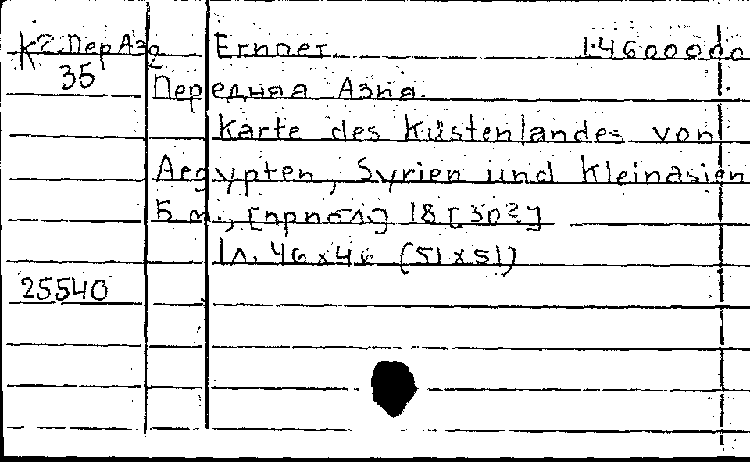 К2.Пер Аз2 Египет. 1:4600000
35
Передная Азиа.
Karte des Küstenlandes von
Aegypten, Syrien und Kleinasien
Б.м., [прибл] 18[30?]
1л. 46x46 (51x51)
25540